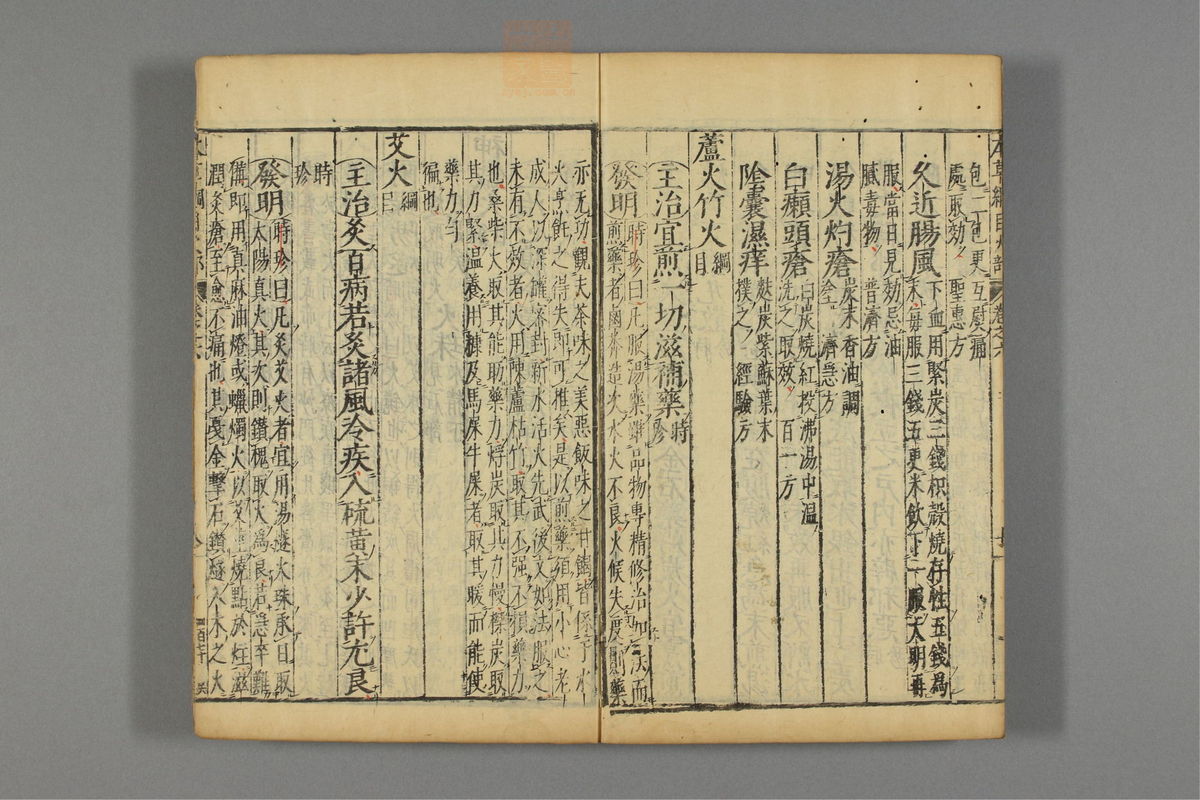 包二包更互熨痛
處取効聖惠方
久近腸風下血用緊炭三錢枳殼燒存性五錢爲
末每服三錢五更米飲下一服天明再
服當日見効忌油
膩毒物普濟方
湯火灼瘡炭末香油調
塗濟急方
白癩頭瘡白炭燒紅投沸湯中溫
洗之取效百一方
陰囊濕痒麩炭紫蘇葉末
撲之經驗方
蘆火竹火綱目
主治宜煎一切滋補藥時珍
發明時珍曰凡服湯藥雖品物專精修治如法而
煎藥者鹵莽造次水火不良火候失度則藥
亦无功觀夫茶味之美惡飯味之甘餲皆係于水
火烹飪之得失即可推矣是以煎藥須用小心老
成人以深罐密封新水活火先武後文如法服之
未有不效者火用陳蘆枯竹取其不强不損藥力
也桑柴火取其能助藥力桴炭取其力慢櫟炭取
其力緊溫養用糠及馬屎牛屎者取其暖而能使
藥力勻
徧也
艾火綱目
主治灸百病若灸諸風冷疾入硫黄末少許尤良
時
珍
發明時珍曰凡灸艾火者宜用陽燧火珠承日取
太陽真火其次則鑽槐取火爲良若急卒難
備即用真麻油燈或蠟燭火以艾莖燒點於炷滋
潤灸瘡至愈不痛也其戛金擊石鑽燧入木之火